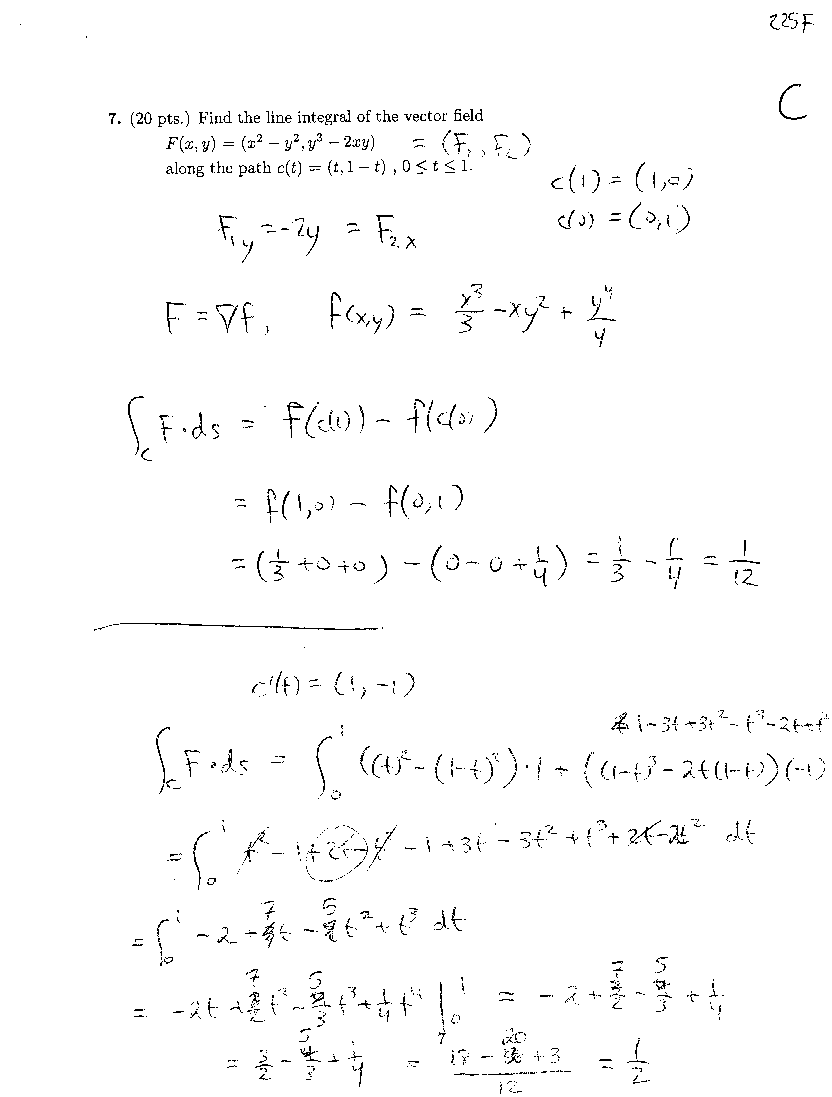 225F
C
7. (20 pts.) Find the line integral of the vector field
F(x, y) = (x² − y², y³ − 2xy) = (F₁, F₂)
along the path c(t) = (t, 1 − t) , 0 ≤ t ≤ 1.
c(1) = (1,0)
c(0) = (0,1)
F₁y = -2y = F₂,x
F = ∇f, f(x,y) = x³/3 - xy² + y⁴/4
∫c F·ds = f(c(1)) - f(c(0))
= f(1,0) - f(0,1)
= (1/3 + 0 + 0) - (0 - 0 + 1/4) = 1/3 - 1/4 = 1/12
c'(t) = (1, -1)
1-3t+3t²-t³-2t+t²
∫c F·ds = ∫₀¹ ((t)² - (1-t)²)·1 + ((1-t)³ - 2t(1-t))(-1)
= ∫₀¹ t² - 1 + 2t - t² - 1 + 3t - 3t² + t³ + 2t - 2t² dt
= ∫₀¹ -2 + 7t - 5t² + t³ dt
= -2t + 7/2 t² - 5/3 t³ + 1/4 t⁴ |₀¹ = -2 + 7/2 - 5/3 + 1/4
= 3/2 - 5/3 + 1/4 = (18 - 20 + 3)/12 = 1/2